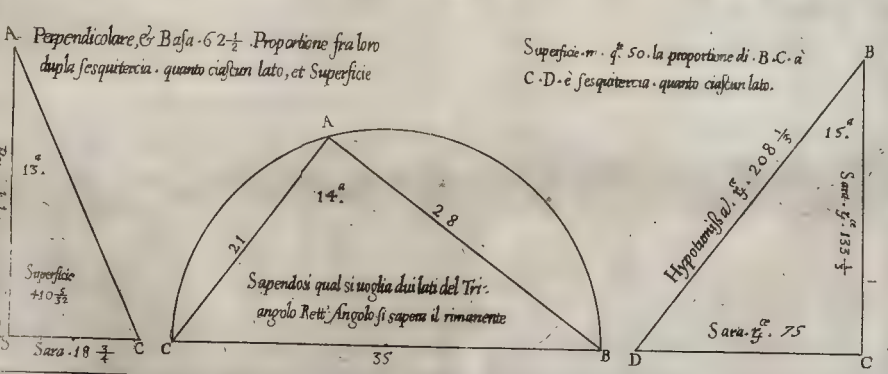 A
Perpendicolare, & Basa · 62 1/2 · Proportione fra loro
dupla sesquitercia · quanto ciascun lato, et Superficie
13.ª
Superficie
410 5/32
Sara · 18 3/4
C
A
14.ª
21
28
Sapendosi qual si uoglia dui lati del Tri-
angolo Rett' Angolo si sapera il rimanente
C
35
B
Superficie · m · q.te 50 · la proportione di · B · C · à
C · D · è sesquitercia · quanto ciascun lato.
B
15.ª
208 1/3
Sara · 133 1/3
Sara · 75
D
C